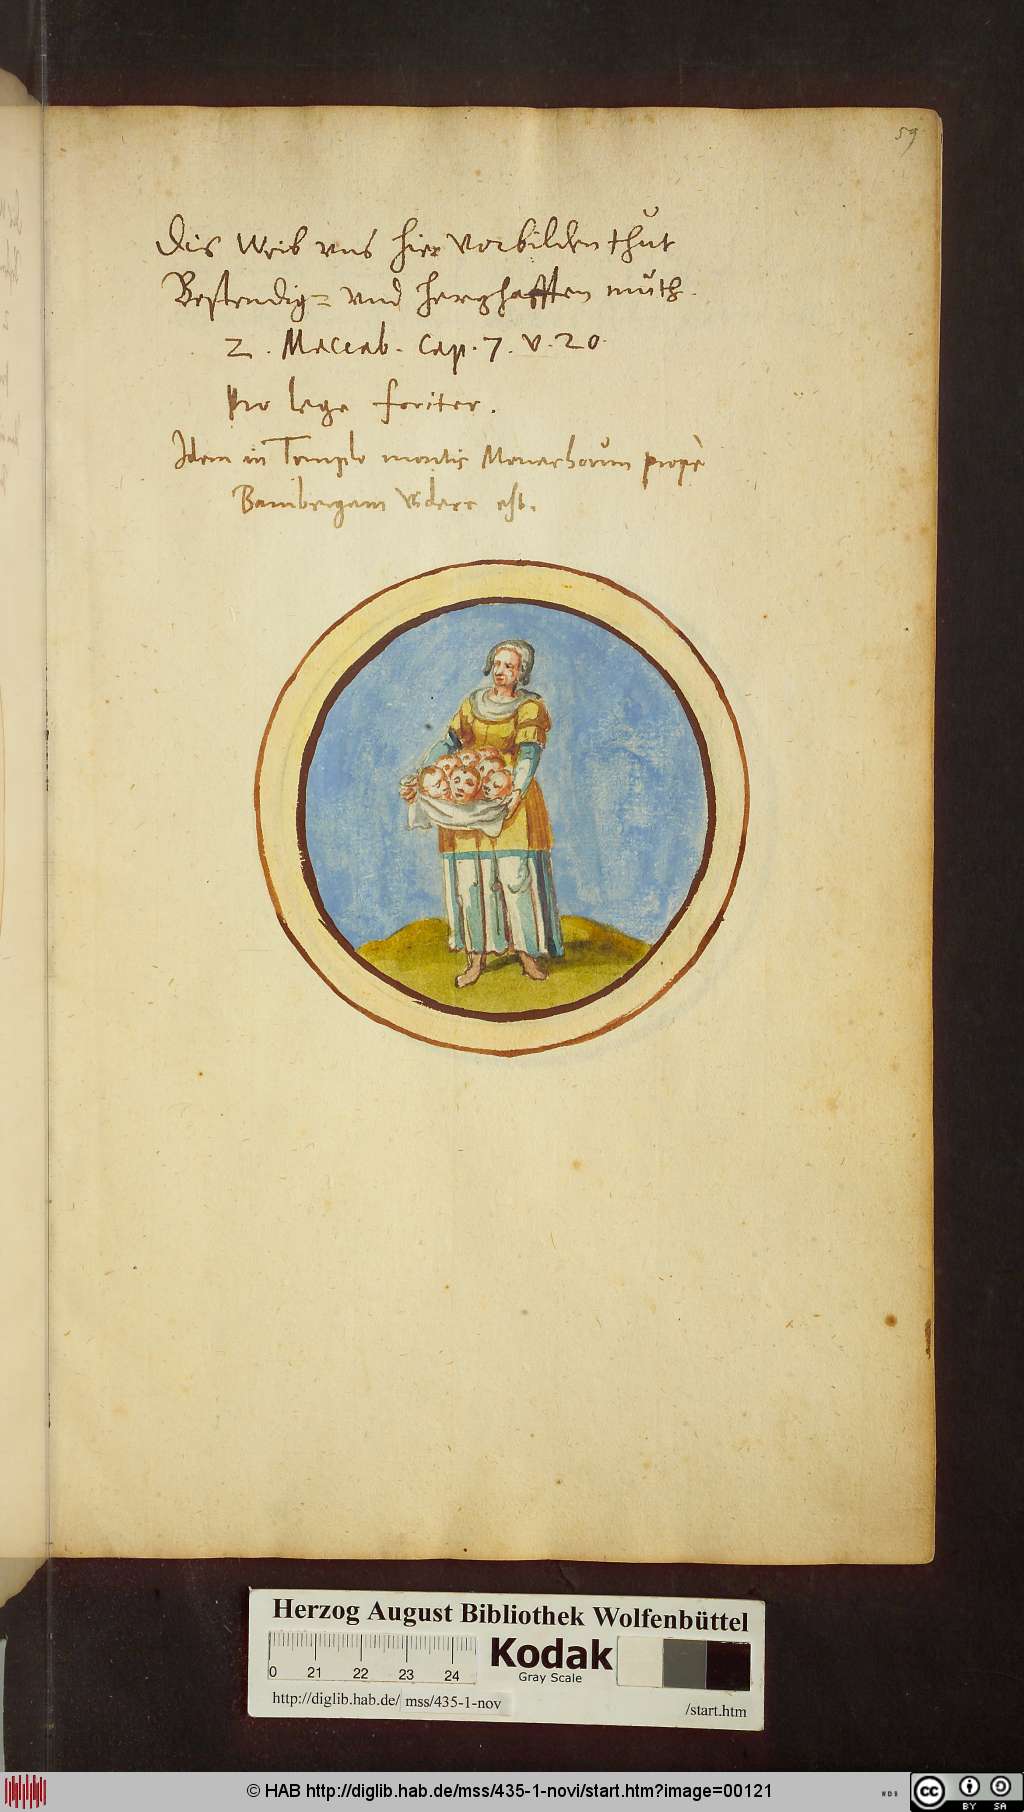 59
Dis Weib vns hier Vorbilden thut
Bestendig= vnd herzhafften muth.
2. Maccab. Cap. 7. v. 20.
pro lege foriter.
Idem in Templo montis Monachorum propè
Bambergam Videre est.
Herzog August Bibliothek Wolfenbüttel
0 21 22 23 24
Kodak
Gray Scale
http://diglib.hab.de/ mss/435-1-nov
/start.htm
© HAB http://diglib.hab.de/mss/435-1-novi/start.htm?image=00121
WDB
cc BY SA